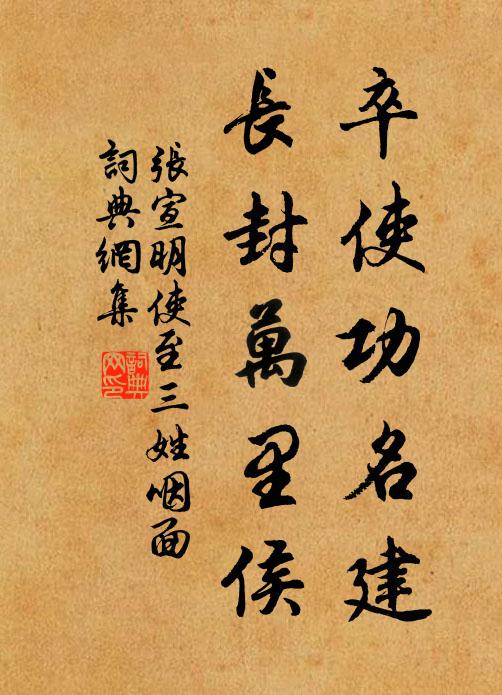 卒使功名建
長封萬里侯
張宣明使至三姓咽面
詞典網集
詞典
網印